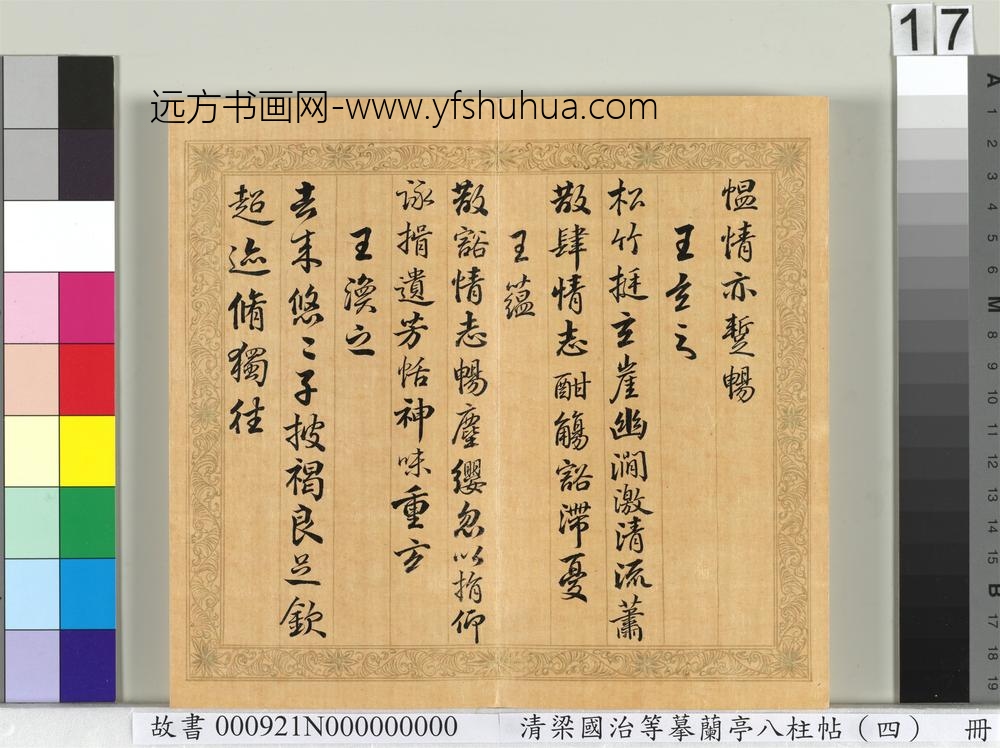 17
远方书画网-www.yfshuhua.com
愠情亦蹔暢
王玄之
松竹挺玄崖幽澗激清流蕭
散肆情志酣觴豁滯憂
王蘊
散豁情志暢塵纓忽以捐仰
詠揖遺芳怡神味重玄
王渙之
去来悠〻子披褐良足欽
超迹脩獨往
A 1 2 3 4 5 6 M 8 9 10 11 12 13 14 15 B 17 18 19
故書 000921N000000000 清梁國治等摹蘭亭八柱帖（四） 冊